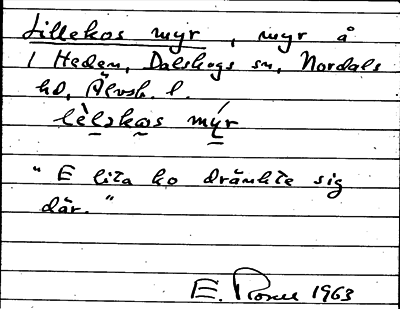 Lillekos myr, myr å
1 Heden, Dalskogs sn, Nordals
hd, Älvsb. l.
lèlskos mýr
"E lita ko dränkte sig
där."
E. 1963